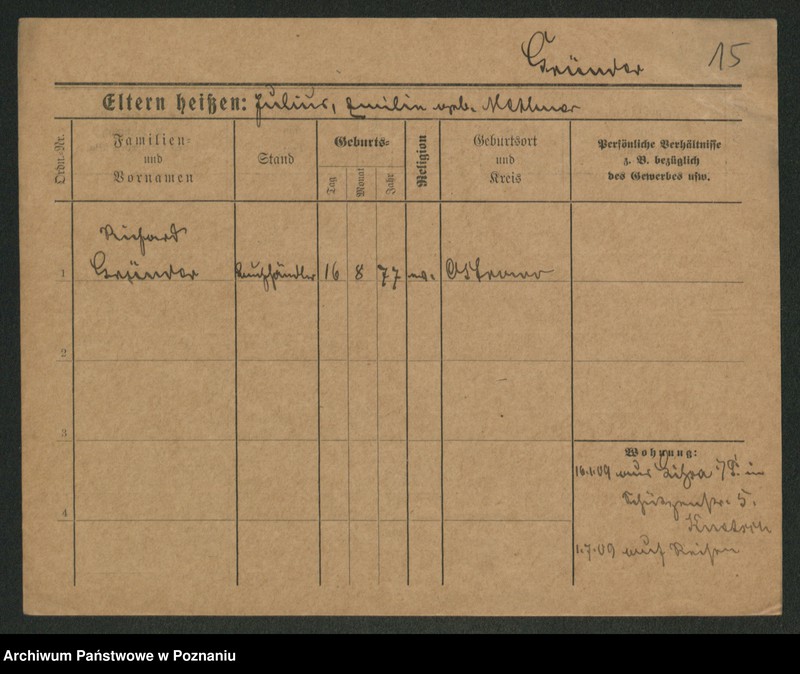 Gründer 15
Eltern heißen: Julius, Emilie geb. Methner
Ordn.-Nr.
Familien- und Vornamen
Stand
Geburts-
Tag
Monat
Jahr
Religion
Geburtsort und Kreis
Persönliche Verhältnisse
z. B. bezüglich
des Gewerbes usw.
Richard
1 Gründer 16 8 77 ev. Ostrowo
2
3
4
Wohnung:
16.1.09 aus
Schützenstr. 5.
1.7.09 auf Reisen
Archiwum Państwowe w Poznaniu